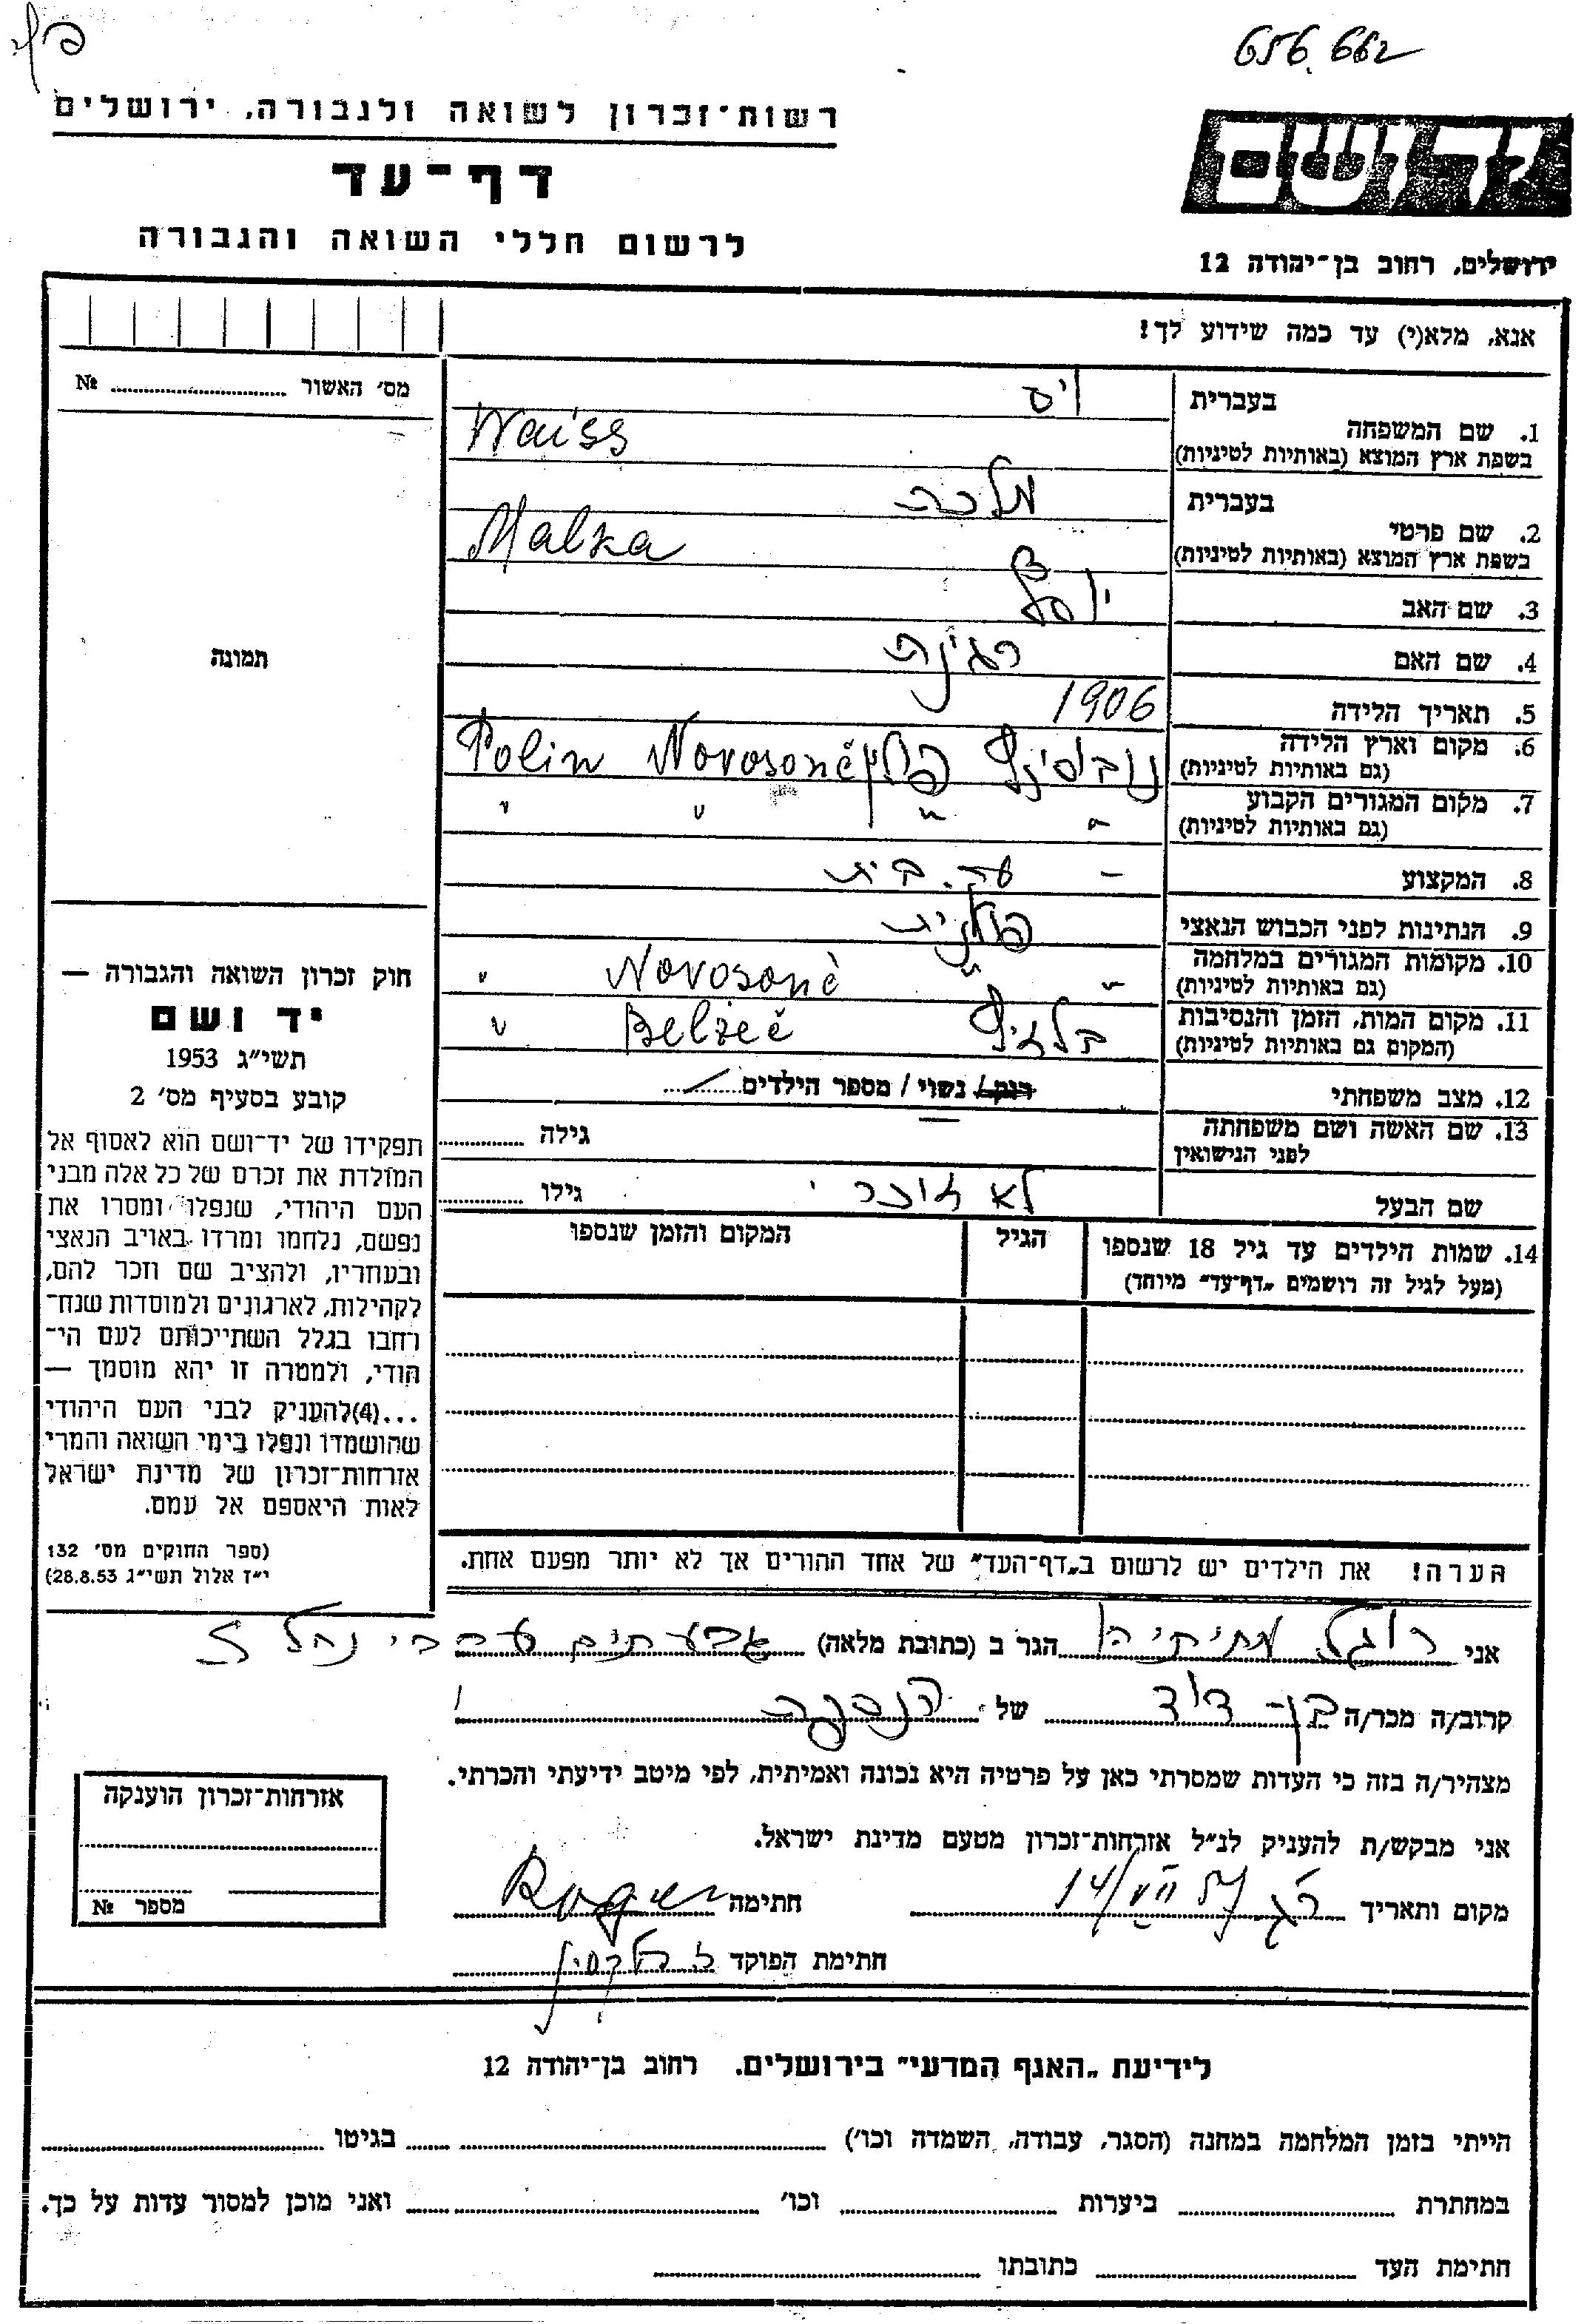 656.662
רשות-זכרון לשואה ולגבורה, ירושלים
ידושם
דף-עד
לרשום חללי השואה והגבורה
ירושלים, רחוב בן-יהודה 12
אנא, מלא(י) עד כמה שידוע לך!
מס׳ האשור ........ №
תמונה
בעברית ויס
1. שם המשפחה
בשפת ארץ המוצא (באותיות לטיניות) Waiss
בעברית מלכה
2. שם פרטי
בשפת ארץ המוצא (באותיות לטיניות) Malka
3. שם האב יוסף
4. שם האם רגינה
5. תאריך הלידה 1906
6. מקום וארץ הלידה
(גם באותיות לטיניות) פולין Novosonč Polin
7. מקום המגורים הקבוע " " " "
(גם באותיות לטיניות)
8. המקצוע - עק. בית
9. הנתינות לפני הכבוש הנאצי פולנית
10. מקומות המגורים במלחמה " " Novosonč "
(גם באותיות לטיניות)
11. מקום המות, הזמן והנסיבות Belžeč "
(המקום גם באותיות לטיניות)
12. מצב משפחתי רוק / נשוי / מספר הילדים ........
13. שם האשה ושם משפחתה גילה ........
לפני הנישואין
שם הבעל לא זוכר גילו ........
14. שמות הילדים עד גיל 18 שנספו הגיל המקום והזמן שנספו
(מעל לגיל זה רושמים „דף-עד" מיוחד)
הערה! את הילדים יש לרשום ב„דף-העד" של אחד ההורים אך לא יותר מפעם אחת.
חוק זכרון השואה והגבורה —
יד ושם
תשי״ג 1953
קובע בסעיף מס׳ 2
תפקידו של יד-ושם הוא לאסוף אל
המולדת את זכרם של כל אלה מבני
העם היהודי, שנפלו ומסרו את
נפשם, נלחמו ומרדו באויב הנאצי
ובעוזריו, ולהציב שם וזכר להם,
לקהילות, לארגונים ולמוסדות שנח-
רבו בגלל השתייכותם לעם הי-
הודי, ולמטרה זו יהא מוסמך —
...(4) להעניק לבני העם היהודי
שהושמדו ונפלו בימי השואה והמרי
אזרחות-זכרון של מדינת ישראל
לאות היאספם אל עמם.
(ספר החוקים מס׳ 132
י״ז אלול תשי״ג 28.8.53)
אני מתיתיהו הגר ב (כתובת מלאה) גבעתיים ערבי נחל 2
קרוב/ה מכר/ה בן-דוד של הנספה
מצהיר/ה בזה כי העדות שמסרתי כאן על פרטיה היא נכונה ואמיתית, לפי מיטב ידיעתי והכרתי.
אני מבקש/ת להעניק לנ״ל אזרחות-זכרון מטעם מדינת ישראל.
מקום ותאריך ר״ג 14/VII 57 חתימה
חתימת הפוקד
אזרחות-זכרון הוענקה
מספר №
לידיעת „האגף המדעי" בירושלים. רחוב בן-יהודה 12
הייתי בזמן המלחמה במחנה (הסגר, עבודה, השמדה וכו׳) ........ בגיטו ........
במחתרת ........ ביערות ........ וכו׳ ........ ואני מוכן למסור עדות על כך.
חתימת העד ........ כתובתו ........